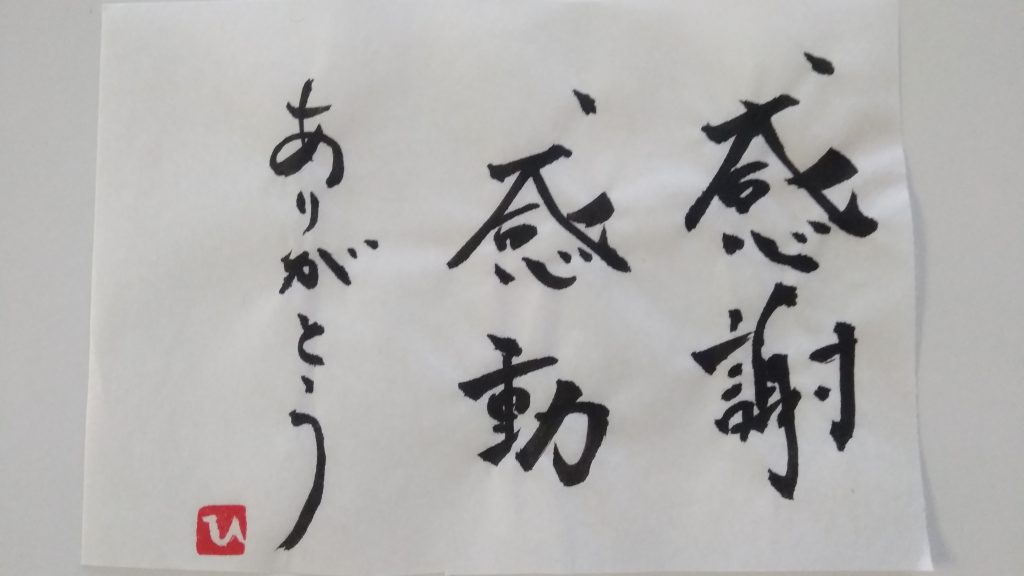 感謝
感動
ありがとう
ひ